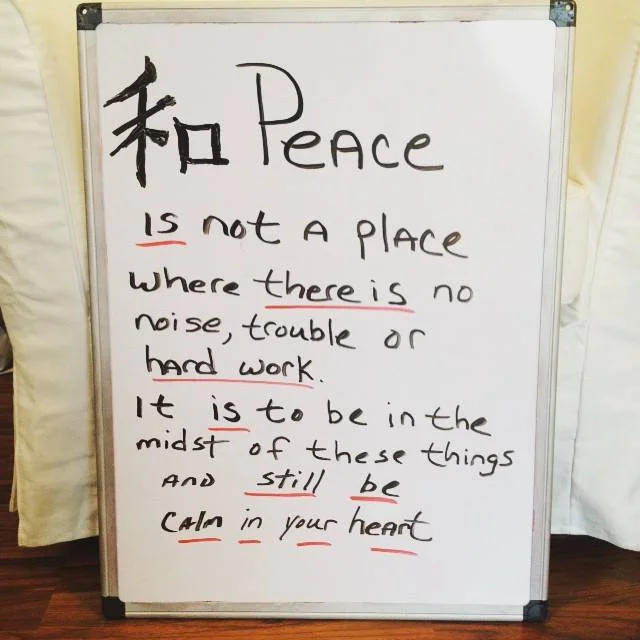 和 PeACe
is not A plACe
where there is no
noise, trouble or
hARD work.
It is to be in the
midst of these things
AND still be
CAlm in your heARt